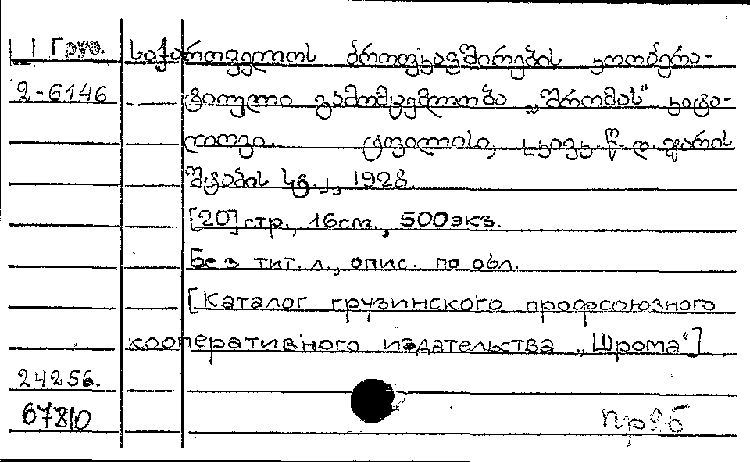 Груз. საქართველოს პროფკავშირების კოოპერა-
2-6146 ტიული გამომცემლობა „შრომას“ კატა-
ლოგი. ტფილისი,
შტაბის სტ., 1928.
[20] стр., 16см., 500экз.
Без тит. л., опис. по обл.
[Каталог грузинского профсоюзного
кооперативного издательства „Шрома“]
24256.
67810 пр25